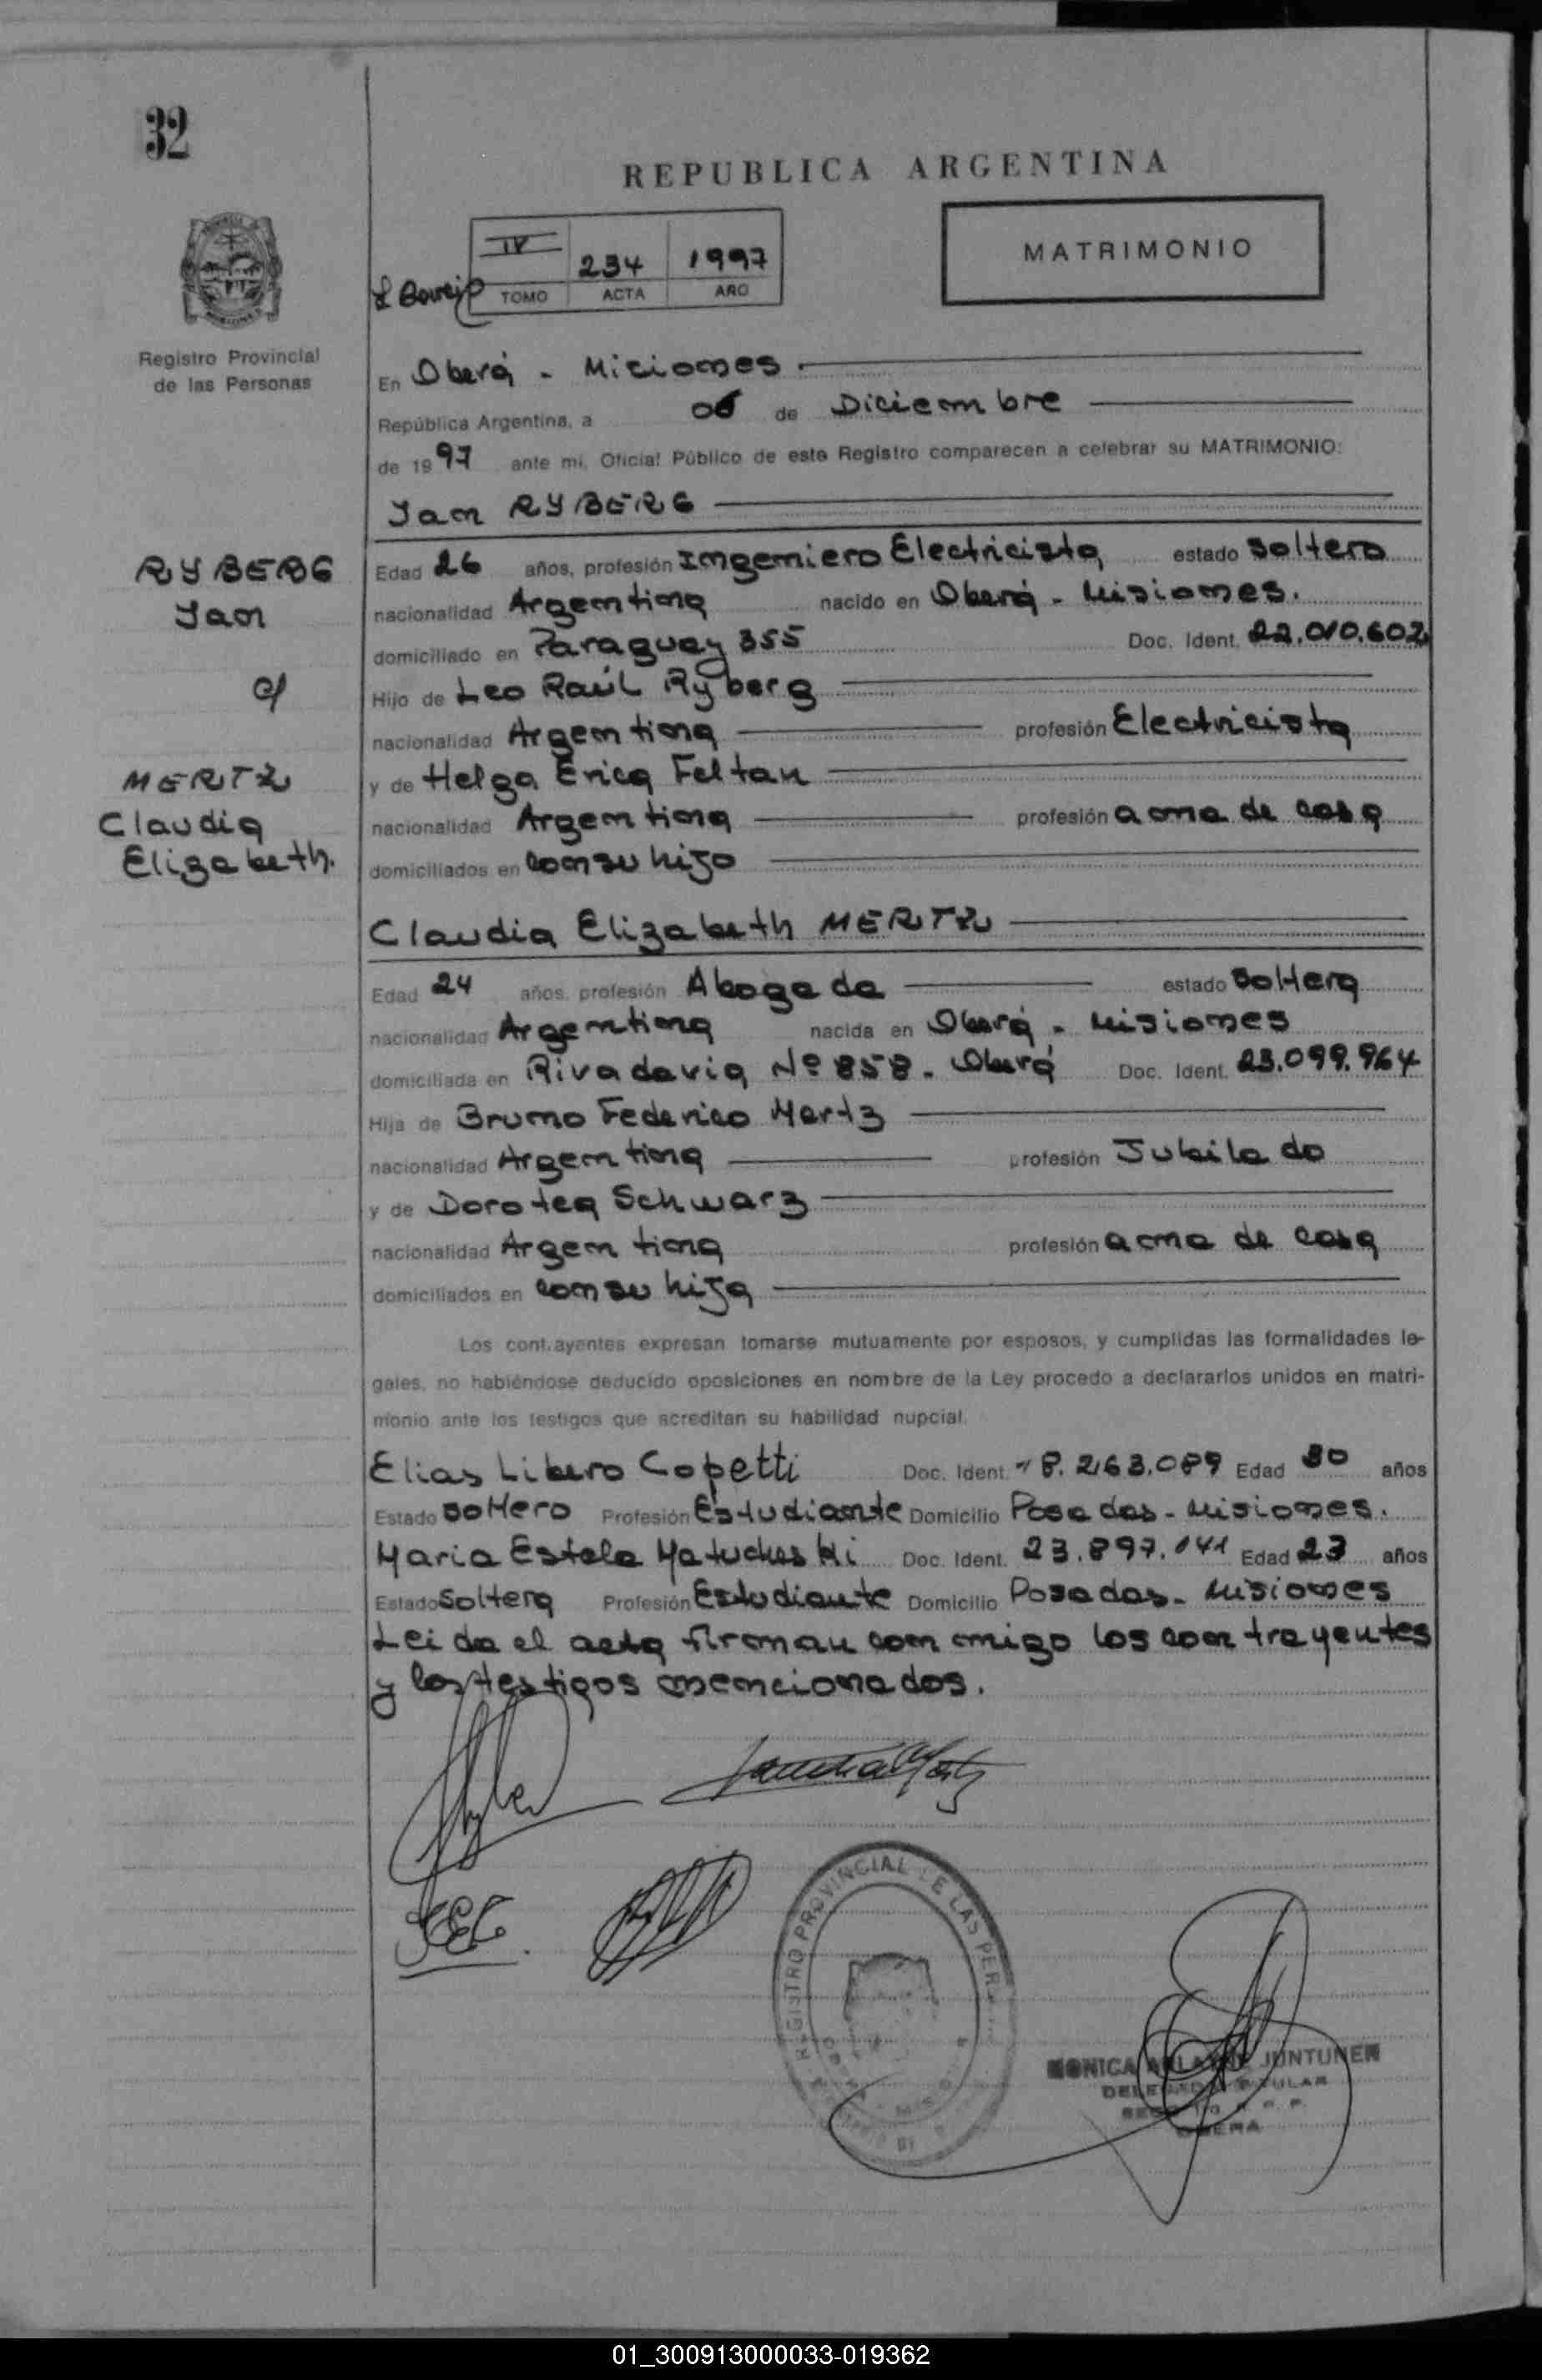 32
REPUBLICA ARGENTINA
IV 234 1997
TOMO ACTA AÑO
MATRIMONIO
Registro Provincial
de las Personas
En Oberá - Misiones.
República Argentina, a 06 de Diciembre
de 1997 ante mi, Oficial Público de este Registro comparecen a celebrar su MATRIMONIO:
Jan RYBERG
RYBERG
Jan
c/
MERTZ
Claudia
Elizabeth.
Edad 26 años, profesión Ingeniero Electricista estado soltero
nacionalidad Argentina nacido en Oberá - Misiones.
domiciliado en Paraguay 355 Doc. Ident. 22.010.602
Hijo de Leo Raúl Ryberg
nacionalidad Argentina profesión Electricista
y de Helga Erica Feltan
nacionalidad Argentina profesión ama de casa
domiciliados en con su hijo
Claudia Elizabeth MERTZ
Edad 24 años, profesión Abogada estado soltera
nacionalidad Argentina nacida en Oberá - Misiones
domiciliada en Rivadavia Nº 858. Oberá Doc. Ident. 23.099.964
Hija de Bruno Federico Mertz
nacionalidad Argentina profesión Jubilado
y de Dorotea Schwarz
nacionalidad Argentina profesión ama de casa
domiciliados en con su hija
Los contrayentes expresan tomarse mutuamente por esposos, y cumplidas las formalidades le-
gales, no habiéndose deducido oposiciones en nombre de la Ley procedo a declararlos unidos en matri-
monio ante los testigos que acreditan su habilidad nupcial.
Elias Libero Copetti Doc. Ident. 18.263.089 Edad 30 años
Estado soltero Profesión Estudiante Domicilio Posadas - Misiones.
Maria Estela Matucheski Doc. Ident. 23.897.141 Edad 23 años
Estado soltera Profesión Estudiante Domicilio Posadas - Misiones
Leida el acta firman conmigo los contrayentes
y los testigos mencionados.
REGISTRO PROVINCIAL DE LAS PER
MONICA JUNTUNEN
OBERA
01_300913000033-019362